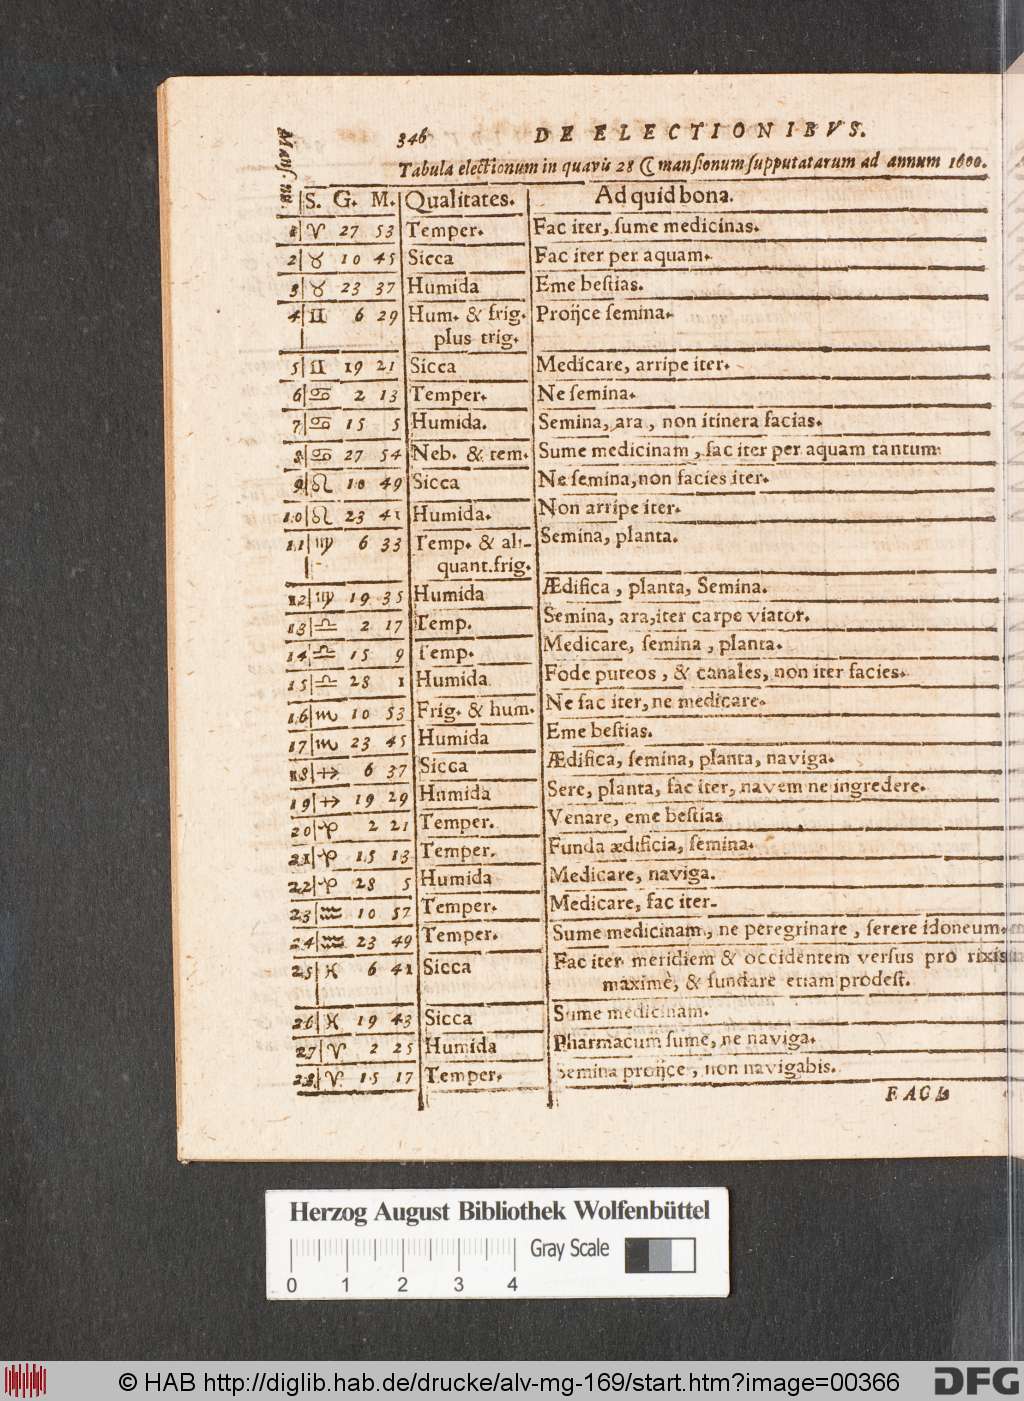 346 DE ELECTIONIBVS.
Tabula electionum in quavis 28 ☾ mansionum supputatarum ad annum 1600.
Mans. nu. S. G. M. Qualitates. Ad quid bona.
1 ♈ 27 53 Temper. Fac iter, sume medicinas.
2 ♉ 10 45 Sicca Fac iter per aquam.
3 ♉ 23 37 Humida Eme bestias.
4 ♊ 6 29 Hum. & frig. Proijce semina.
plus trig.
5 ♊ 19 21 Sicca Medicare, arripe iter.
6 ♋ 2 13 Temper. Ne semina.
7 ♋ 15 5 Humida. Semina, ara, non itinera facias.
8 ♋ 27 54 Neb. & tem. Sume medicinam, fac iter per aquam tantum.
9 ♌ 10 49 Sicca Ne semina, non facies iter.
10 ♌ 23 41 Humida. Non arripe iter.
11 ♍ 6 33 Temp. & ali- Semina, planta.
quant. frig.
12 ♍ 19 35 Humida Ædifica, planta, Semina.
13 ♎ 2 17 Temp. Semina, ara, iter carpe viator.
14 ♎ 15 9 Temp. Medicare, semina, planta.
15 ♎ 28 1 Humida Fode puteos, & canales, non iter facies.
16 ♏ 10 53 Frig. & hum. Ne fac iter, ne medicare.
17 ♏ 23 45 Humida Eme bestias.
18 ♐ 6 37 Sicca Ædifica, semina, planta, naviga.
19 ♐ 19 29 Humida Sere, planta, fac iter, navem ne ingredere.
20 ♑ 2 21 Temper. Venare, eme bestias
21 ♑ 15 13 Temper. Funda ædificia, semina.
22 ♑ 28 5 Humida Medicare, naviga.
23 ♒ 10 57 Temper. Medicare, fac iter.
24 ♒ 23 49 Temper. Sume medicinam, ne peregrinare, serere idoneum.
25 ♓ 6 41 Sicca Fac iter meridiem & occidentem versus pro rixis
maximè, & fundare etiam prodest.
26 ♓ 19 43 Sicca Sume medicinam.
27 ♈ 2 25 Humida Pharmacum sume, ne naviga.
28 ♈ 15 17 Temper. Semina proijce, non navigabis.
FACI,
Herzog August Bibliothek Wolfenbüttel
Gray Scale
0 1 2 3 4
© HAB http://diglib.hab.de/drucke/alv-mg-169/start.htm?image=00366
DFG